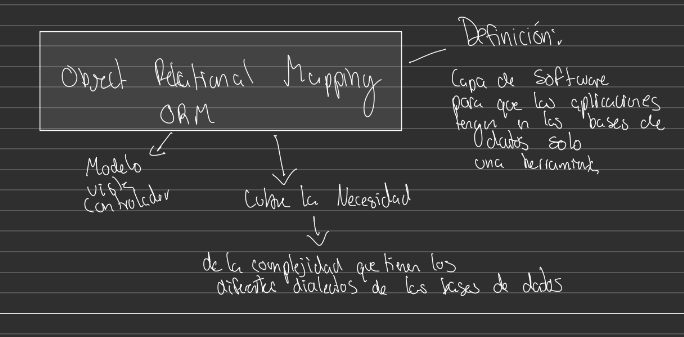 Object Relational Mapping
ORM
Definición:
Capa de software
para que las aplicaciones
tengan en las bases de
datos solo
una herramienta
Modelo
vista
Controlador
Cubre la Necesidad
de la complejidad que tienen los
diferentes dialectos de las bases de dados